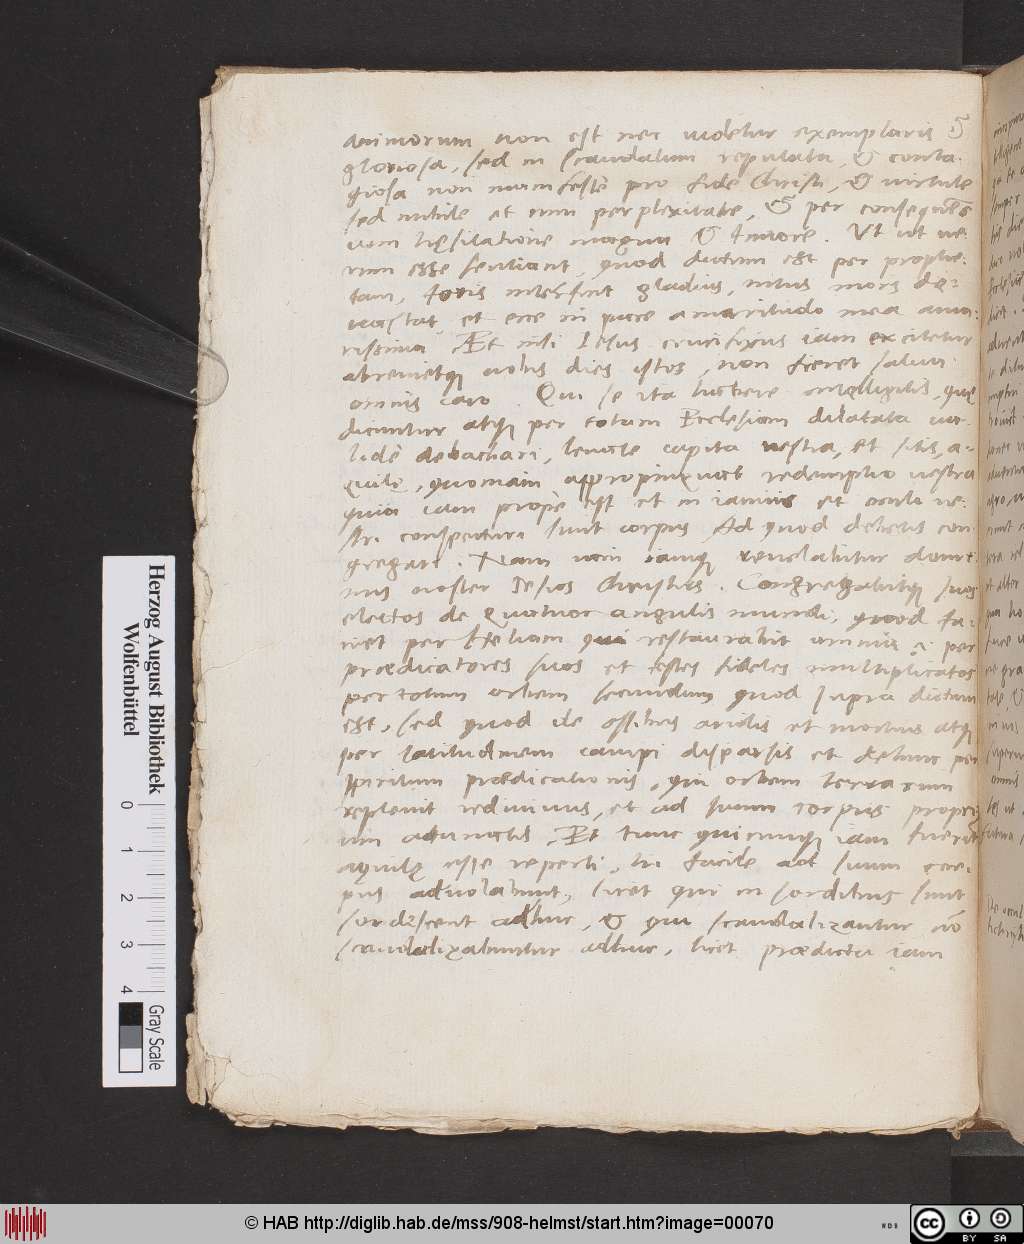 animorum non est nec uidetur exemplaris &
gloriosa, sed in scandalum reputata, & conta-
giosa non manifestè pro fide Christi, & uirtute
sed nubile et cum perplexitate, & per conseque͂s
cum hęsitatione magna & timore. Ut ut ue
rum esse sentiant, quod dictum est per prophe-
tam, foris interfuit gladius, intus mors de-
uastat, et ecce in pace amaritudo mea ama-
rissima. Et nisi Iesus crucifixus iam excitetur
abreuietq uobis dies istos, non fieret salua
omnis caro. Qui se ita habere intelligitis, quę
dicuntur atq per totam Ecclesiam dilatata ua-
lidè debachari, leuate capita uestra, et sitis a-
quilę, quoniam appropinquat redemptio uestra
quia iam propè est et in ianuis et oculi ue-
stri conspecturi sunt corpus Ad quod debetis con
gregari. Nam iam iamq reuelabitur domi-
nus noster Iesus Christus. Congregabitq suos
electos de quatuor angulis mundi, quod fa-
ciet per Heliam qui restaurabit omnia per
prædicatores suos et testes fideles multiplicatos
per totum orbem secundum quod supra dictum
est, sed quod de ossibus aridis et mortuis atq
per latitudinem campi dispersis et tunc per
spiritum prædicationis, qui orbem terrarum
repleuit rediuiuus, et ad suum corpus propri
um adunatis. Et tunc quicunq iam fuerit
aquilę esse reperti, hi facile ad suum cor-
pus aduolabunt, licet qui in sordibus sunt
sordescent adhuc, & qui scandalizantur, no͂
scandalizabuntur adhuc, licet prædicta iam
Herzog August Bibliothek
Wolfenbüttel
0 1 2 3 4
Gray Scale
© HAB http://diglib.hab.de/mss/908-helmst/start.htm?image=00070
WDB
cc BY SA